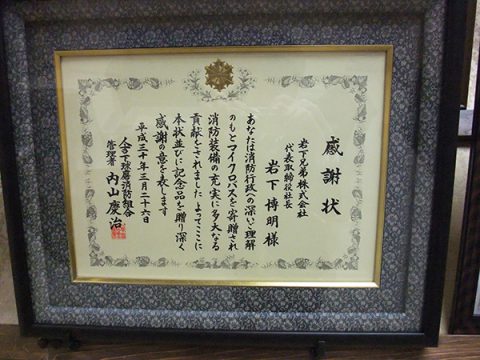 感謝状
岩下兄弟株式会社
代表取締役社長
岩下博明様
あなたは消防行政への深いご理解
のもとマイクロバスを寄贈され
消防装備の充実に多大なる
貢献をされました よってここに
本状並びに記念品を贈り深く
感謝の意を表します
平成三十年三月二十六日
人吉下球磨消防組合
管理者 内山慶治